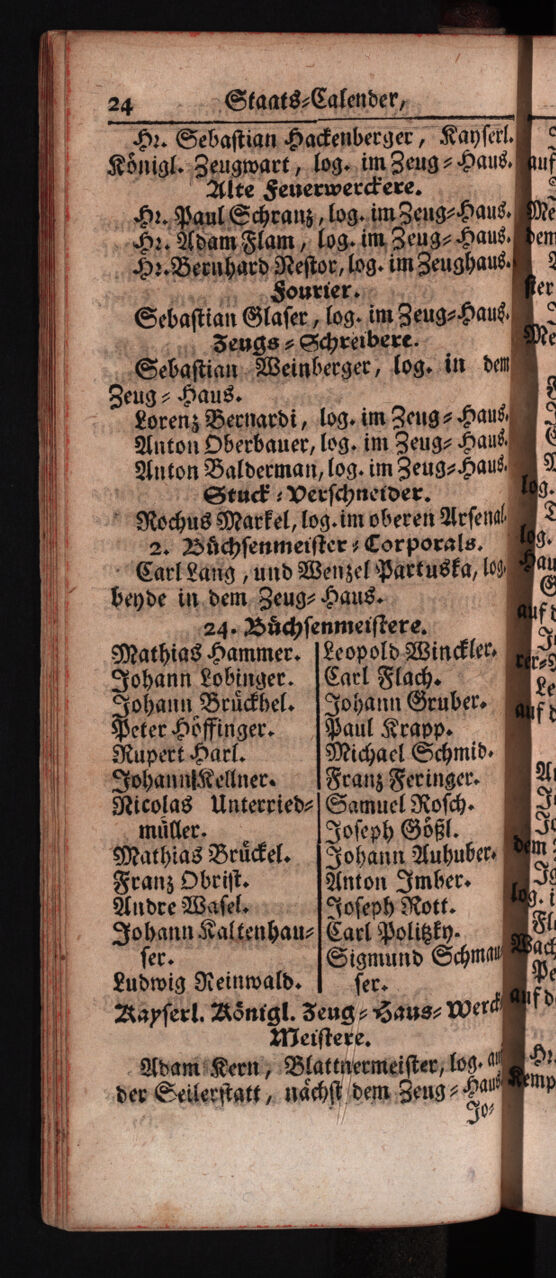 24 Staats-Calender,
Hr. Sebastian Hackenberger, Kayserl.
Königl. Zeugwart, log. im Zeug-Haus.
Alte Feuerwerckere.
Hr. Paul Schranz, log. im Zeug-Haus.
Hr. Adam Flam, log. im Zeug-Haus.
Hr. Bernhard Nestor, log. im Zeughaus.
Fourier.
Sebastian Glaser, log. im Zeug-Haus.
Zeugs-Schreibere.
Sebastian Weinberger, log. in dem
Zeug-Haus.
Lorenz Bernardi, log. im Zeug-Haus.
Anton Oberbauer, log. im Zeug-Haus.
Anton Balderman, log. im Zeug-Haus.
Stuck-Verschneider.
Rochus Markel, log. im oberen Arsenal
2. Büchsenmeister-Corporals.
Carl Lang, und Wenzel Partuska, log.
beyde in dem Zeug-Haus.
24. Büchsenmeistere.
Mathias Hammer.
Johann Lobinger.
Johann Brückhel.
Peter Höffinger.
Rupert Harl.
Johann Kellner.
Nicolas Unterried-
müller.
Mathias Brückel.
Franz Obrist.
Andre Wasel.
Johann Kaltenhau-
ser.
Ludwig Reinwald.
Leopold Winckler.
Carl Flach.
Johann Gruber.
Paul Krapp.
Michael Schmid.
Franz Feringer.
Samuel Rosch.
Joseph Gößl.
Johann Auhuber.
Anton Imber.
Joseph Rott.
Carl Politzky.
Sigmund Schmau
ser.
Kayserl. Königl. Zeug-Haus-Werck
Meistere.
Adam Kern, Blattnermeister, log. an
der Seilerstatt, nächst dem Zeug-Haus
Jo-